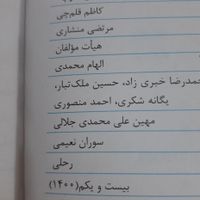 کاظم قلم‌چی
مرتضی منشاری
هیأت مؤلفان
الهام محمدی
حمدرضا خبری زاد، حسین ملک‌تبار،
یگانه شکری، احمد منصوری
مهین علی محمدی جلالی
سوران نعیمی
رحلی
بیست و یکم(۱۴۰۰)